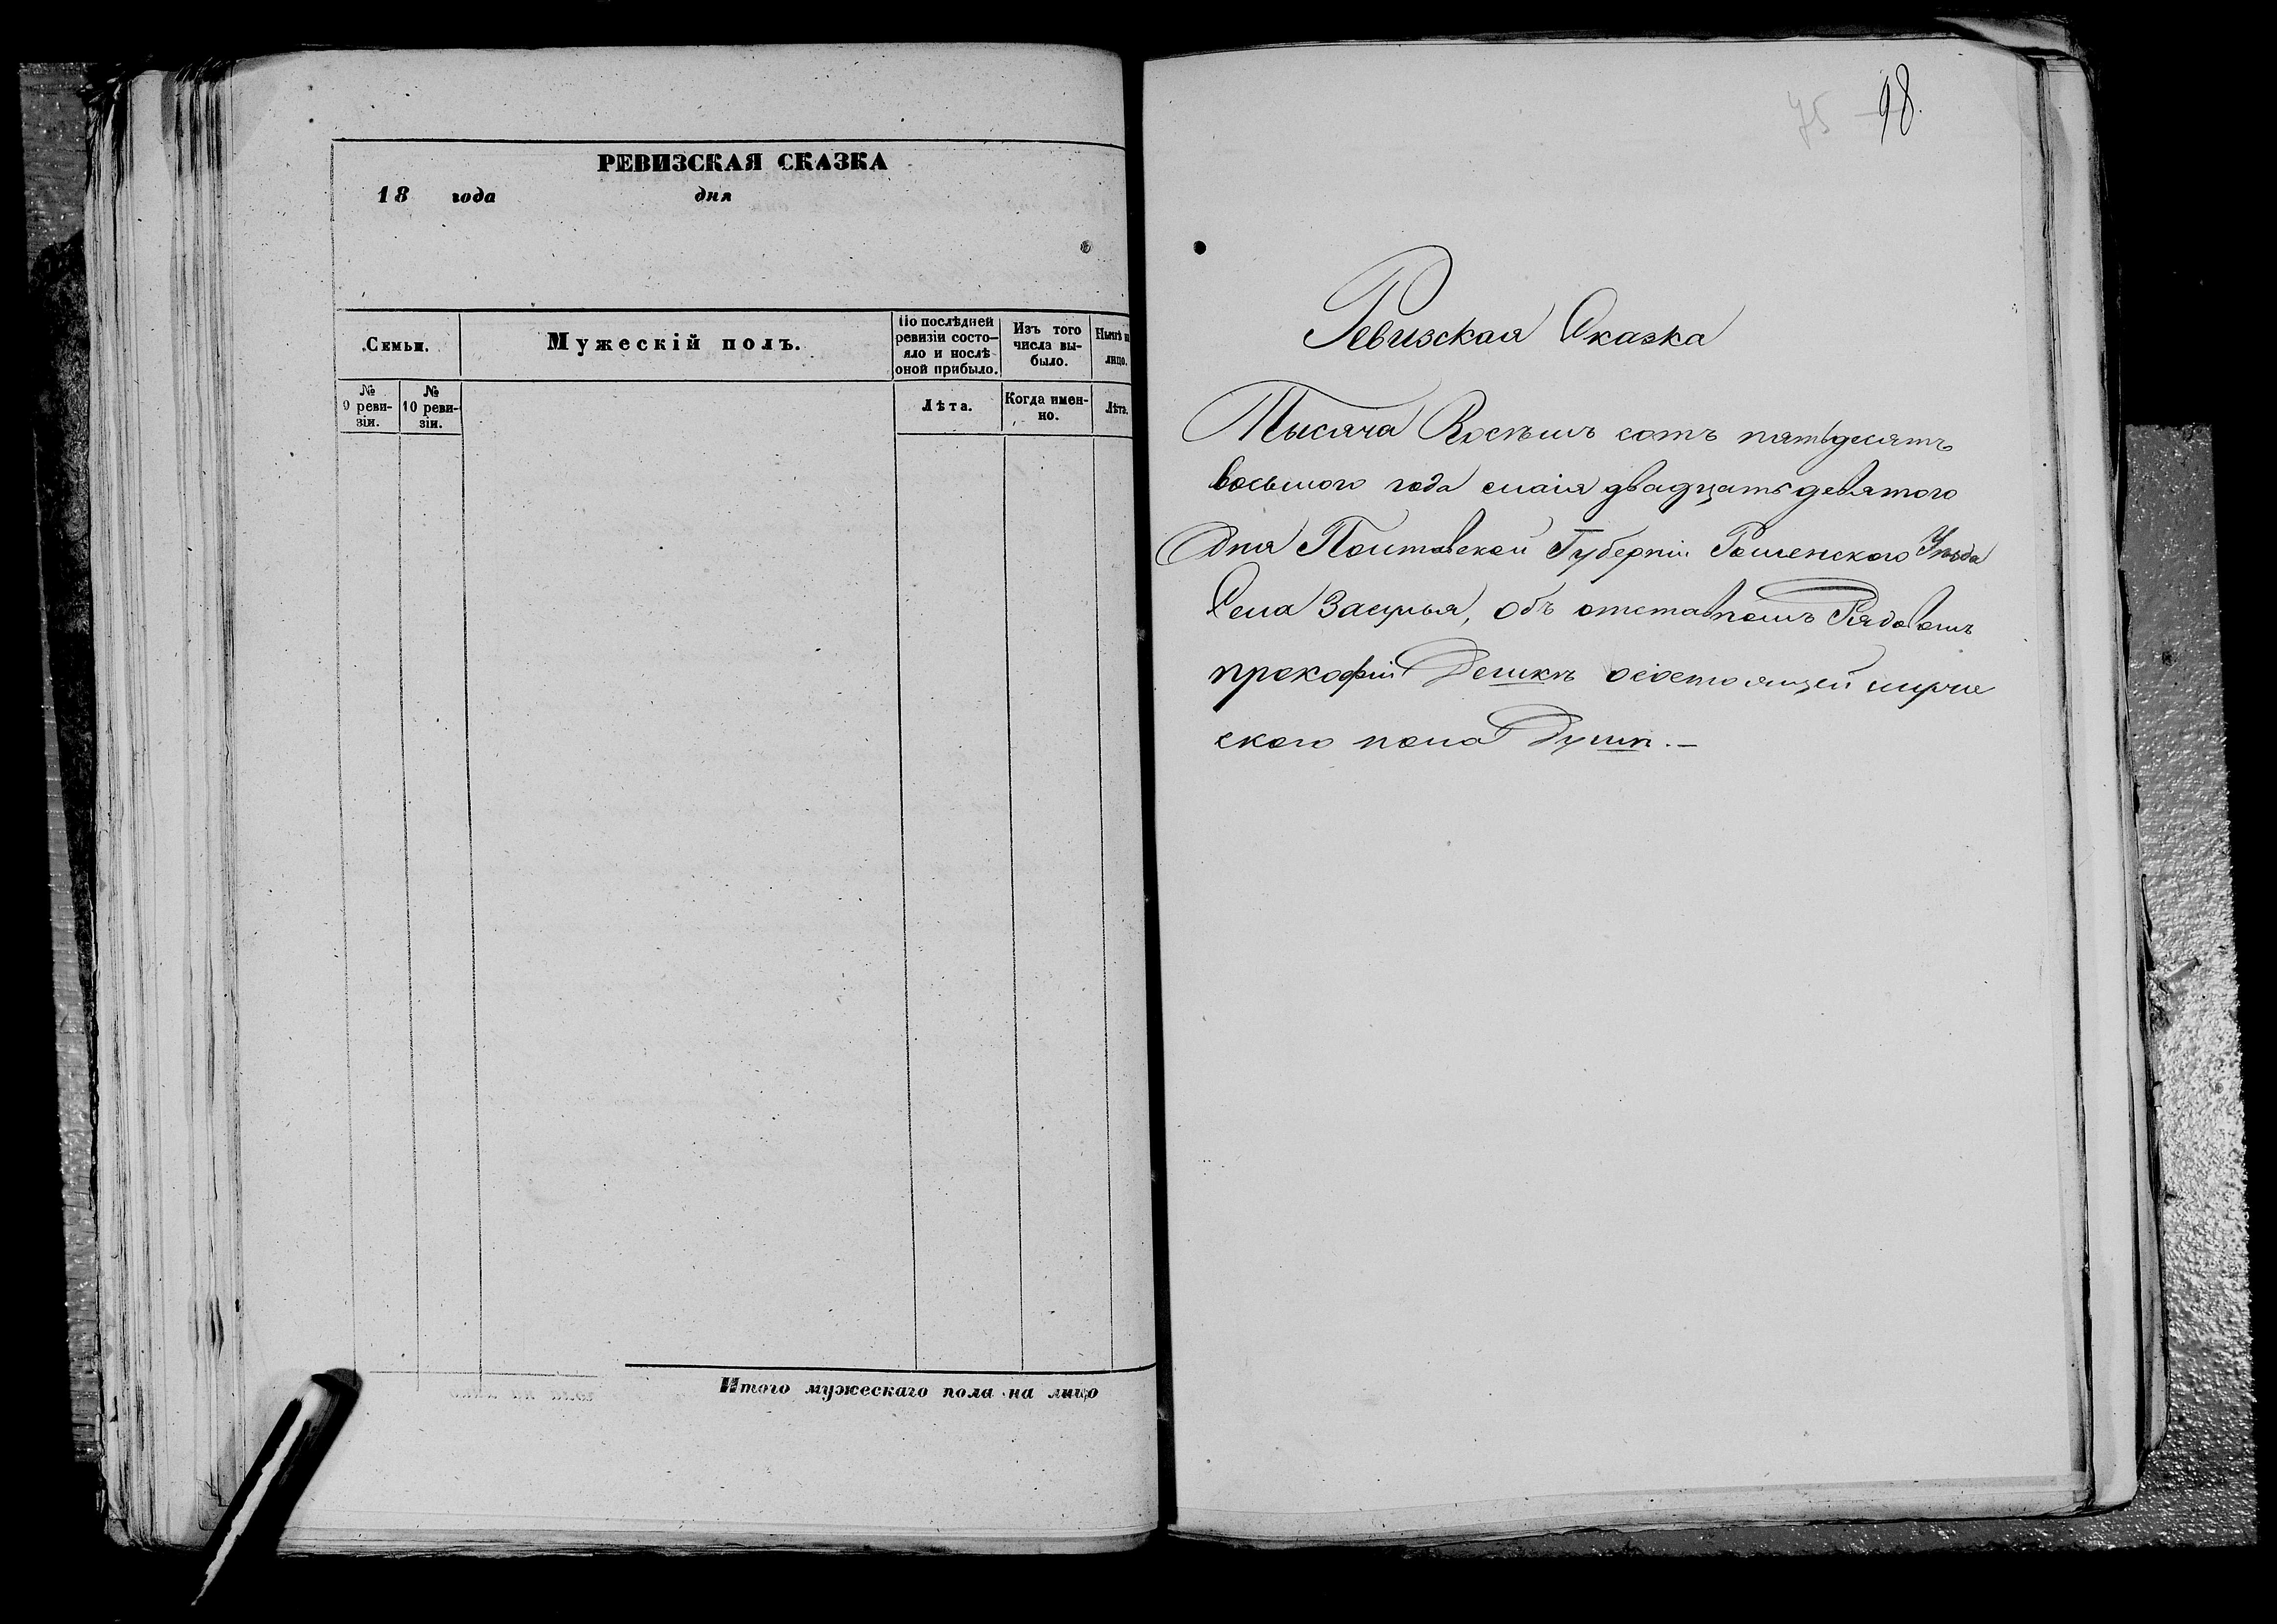 РЕВИЗСКАЯ СКАЗКА
18 года дня
Семьи.
Мужескій полъ.
По послѣдней ревизіи состо-
яло и послѣ оной прибыло.
Изъ того числа вы-
было.
Нынѣ на лицо.
№ 9 реви-
зіи.
№ 10 реви-
зіи.
Лѣта.
Когда имен-
но.
Лѣта.
Итого мужескаго пола на лицо
75
98.
Ревизская Сказка
Тысяча Восѣмъ сотъ пятьдесятъ
восьмого года маія двадцать девятого
Дня Полтавской Губерніи Роменского Уѣзда
Села Засулья, объ отставномъ Рядовомъ
прокофіи состоящей мужче
ского пола Души.—